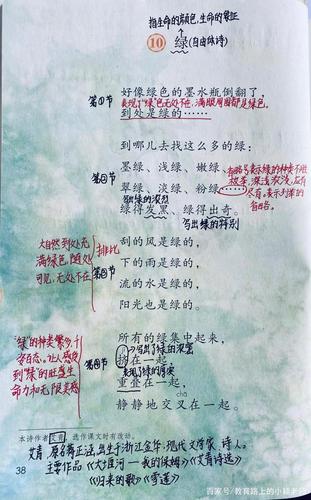 指生命的颜色,生命的象征
10 绿(自由体诗)
好像绿色的墨水瓶倒翻了,
第①节
表现了"绿"色无处不在,满眼周围都是绿色。
到处是绿的……
到哪儿去找这么多的绿:
墨绿、浅绿、嫩绿、
第②节
翠绿、淡绿、粉绿……
写出绿的浓烈
绿得发黑、绿得出奇。
写出绿的特别
刮的风是绿的,
排比
大自然到处充
满绿色,随处
可见,无处不在
下的雨是绿的,
第③节
流的水是绿的,
阳光也是绿的。
所有的绿集中起来,
写出了绿的浓密
挤在一起,
第④节
表现了绿的厚实
重叠在一起,
chā
静静地交叉在一起。
本诗作者艾青,选作课文时有改动。
38
艾青 原名蒋正涵,出生于浙江金华,现代文学家、诗人。
主要作品《大堰河——我的保姆》《艾青诗选》
《归来的歌》《雪莲》
百家号/教育路上的小颖老师